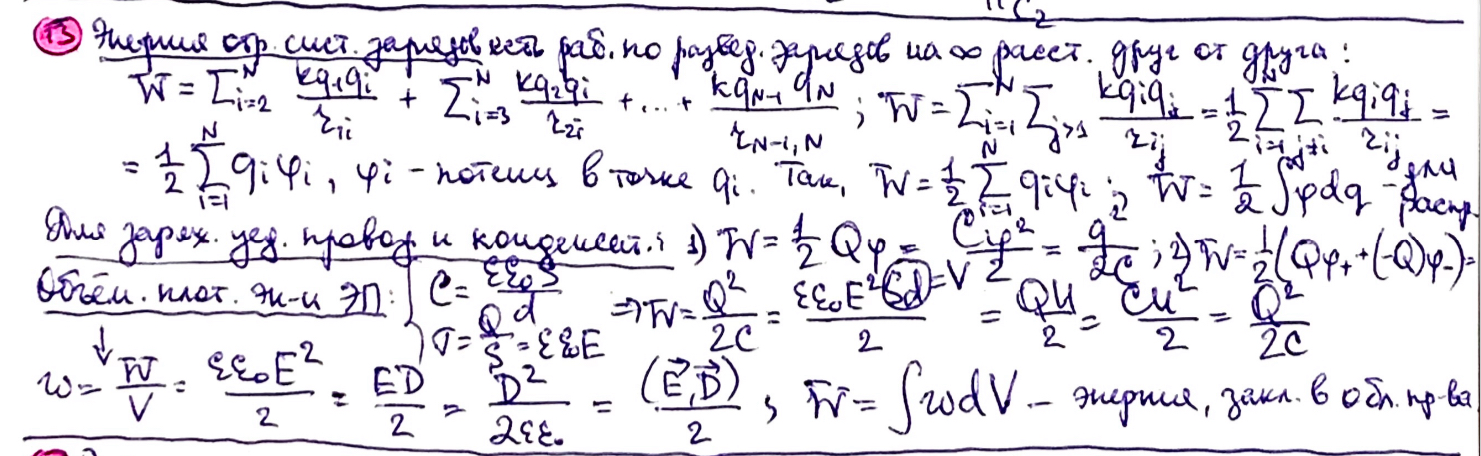 C₂
13 Энергия стр. сист. зарядов есть раб. по развед. зарядов на ∞ расст. друг от друга :
W = Σ_{i=2}^{N} kq₁qᵢ/r₁ᵢ + Σ_{i=3}^{N} kq₂qᵢ/r₂ᵢ + ... + kq_{N-1}q_N/r_{N-1,N} ; W = Σ_{i=1}^{N} Σ_{j>i} kqᵢqⱼ/rᵢⱼ = 1/2 Σ_{i=1}^{N} Σ_{j≠i} kqᵢqⱼ/rᵢⱼ =
= 1/2 Σ_{i=1}^{N} qᵢφᵢ, φᵢ - потенц в точке qᵢ. Так, W = 1/2 Σ_{i=1}^{N} qᵢφᵢ ; W = 1/2 ∫φdq - для распр
Для заряж. уед. провод и конденсат. : 1) W = 1/2 Qφ = Cφ²/2 = q²/2C ; 2) W = 1/2 (Qφ₊ + (-Q)φ₋) =
Объём. плот. эн-и ЭП : { C = εε₀S/d ⇒ W = Q²/2C = εε₀E²Sd/2 = QU/2 = CU²/2 = Q²/2C
σ = Q/S = εε₀E
Sd = V
↓ w = W/V = εε₀E²/2 = ED/2 = D²/2εε₀ = (E⃗,D⃗)/2 ; W = ∫wdV - энергия, закл. в обл. пр-ва